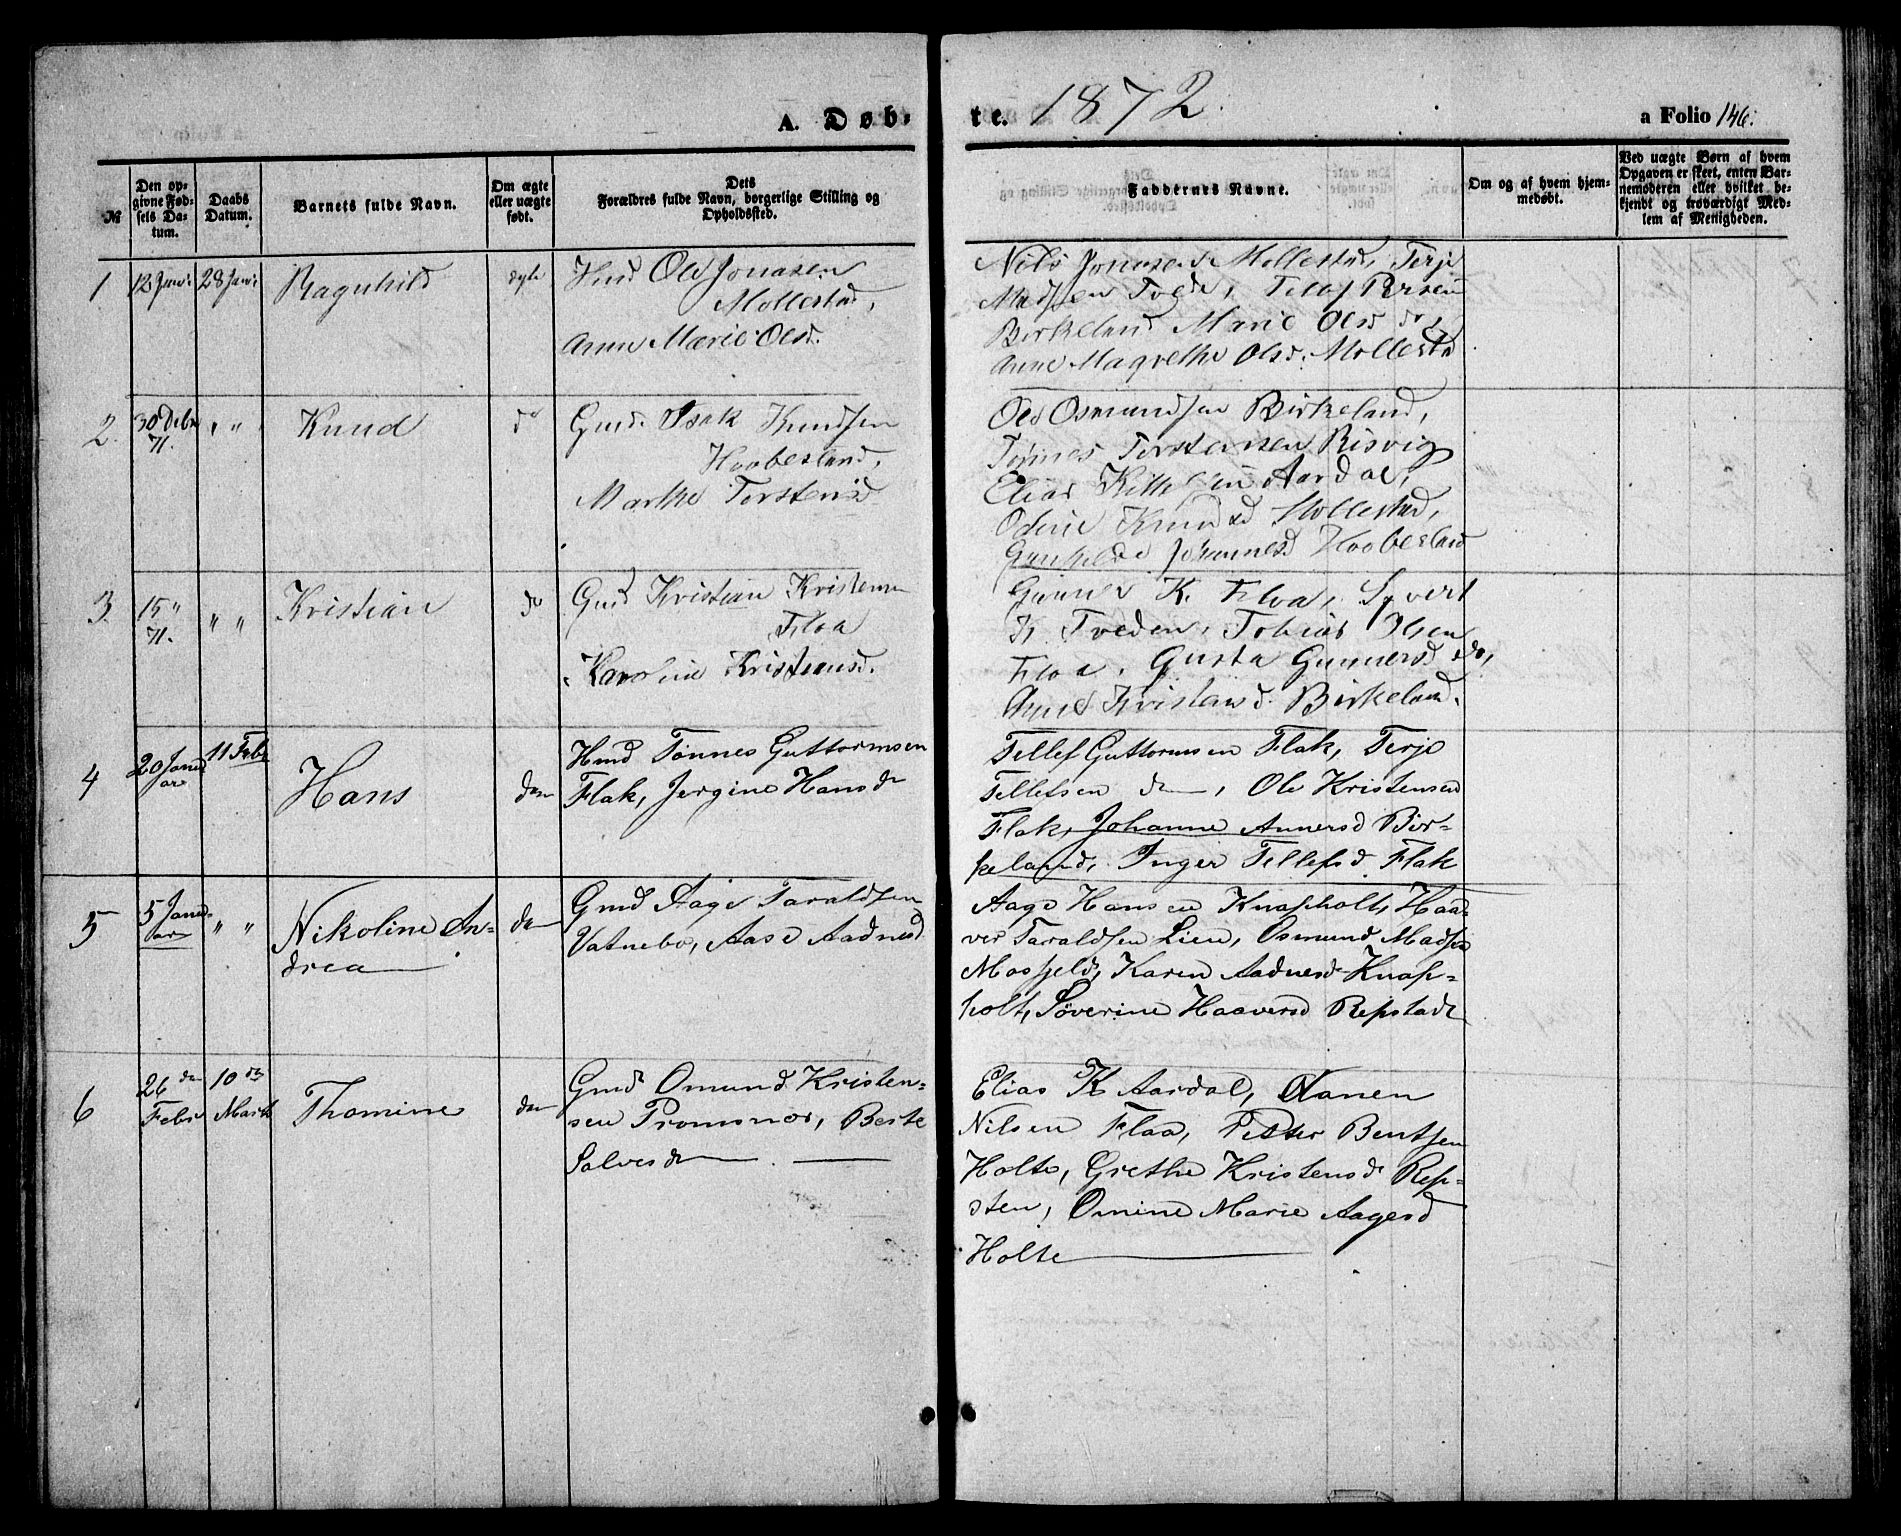 A. Døb- te. 1872.
a Folio 146.
№
Den opgivne Fødsels Datum.
Daabs Datum.
Barnets fulde Navn.
Om ægte eller uægte født.
Dets Forældres fulde Navn, borgerlige Stilling og Opholdssted.
Faddernes Navne.
Om og af hvem hjemmedøbt.
Ved uægte Børn af hvem Opgaven er skeet, enten Barnemoderen eller hvilket bekjendt og troværdigt Medlem af Menigheden.
1 12 Janr: 28 Janr: Ragnhild ægte
Ole Jonasen
Mollestad,
Anne Marie Olsd.
Nils Jonasen Mollestad, Terje
Madsen Tvede, Tellef Persen
Birkeland Marie Olsd do,
Anne Magrethe Olsd. Mollestad
2. 30 Debr 71. " " Knud do
Gmd. Isak Knudsen
Hoobesland,
Marthe Torstensd
Ole Osmundsen Birkeland,
Tønnes Torstensen Risvig
Elias Kittelsen Aardal,
Odine Knudsd Mollestad,
Gunhilde Johannesd Hoobesland
3. 15 " 71. " " Kristian do
Gmd Kristian Kristensen
Floa
Karoline Kristiansd.
Gunner K. Floa, Syvert
K. Tveden, Tobias Olsen
Floa, Gusta Gunnersd do,
Anne Kristensd. Birkeland.
4 20 Januar 11 Febr Hans do
Hmd Tønnes Guttormsen
Flak, Jørgine Hansd
Tellef Guttormsen Flak, Terje
Tellefsen do, Ole Kristensen
Flak, Johanne Annersd Bir-
keland, Inger Tellefsd. Flak
5 5 Januar " " Nikoline An-
drea do
Gmd Aage Taraldsen
Vatnebo, Aase Aadnesd
Aage Hansen Knapholt, Haa-
ver Taraldsen Lien, Osmund Madsen
Mosfjeld, Karen Aadnesd Knap-
holt, Søverine Haaversd Repstad
6 26 de Febr 10 de Marts Thomine do
Gmd Omund Kristen-
sen Promsnes, Berte
Salvesd
Elias K Aardal, Aanen
Nilsen Flaa, Petter Bentsen
Holte, Grethe Kristensd Rep-
sten, Omine Marie Aagesd
Holte